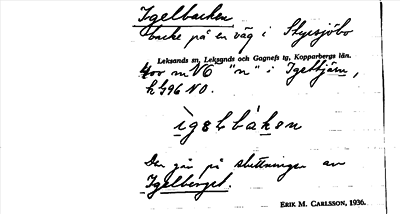 Igelbacken
backe på en väg i Styrsjöbo
Leksands sn, Leksands och Gagnefs tg, Kopparbergs län.
400 m VÖ "n" i Igeltjärn,
k 496 NO.
ìgəlbàkən
Den går på sluttningen av
Igelberget.
ERIK M. CARLSSON, 1936.